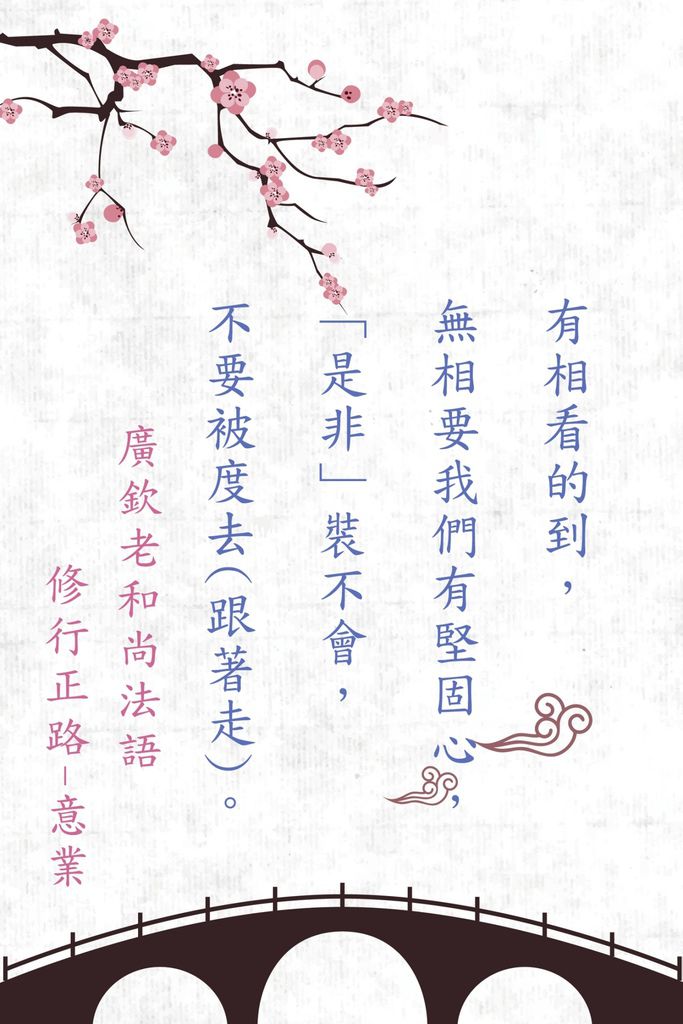 有相看的到，
無相要我們有堅固心，
「是非」裝不會，
不要被度去(跟著走)。
廣欽老和尚法語
修行正路-意業